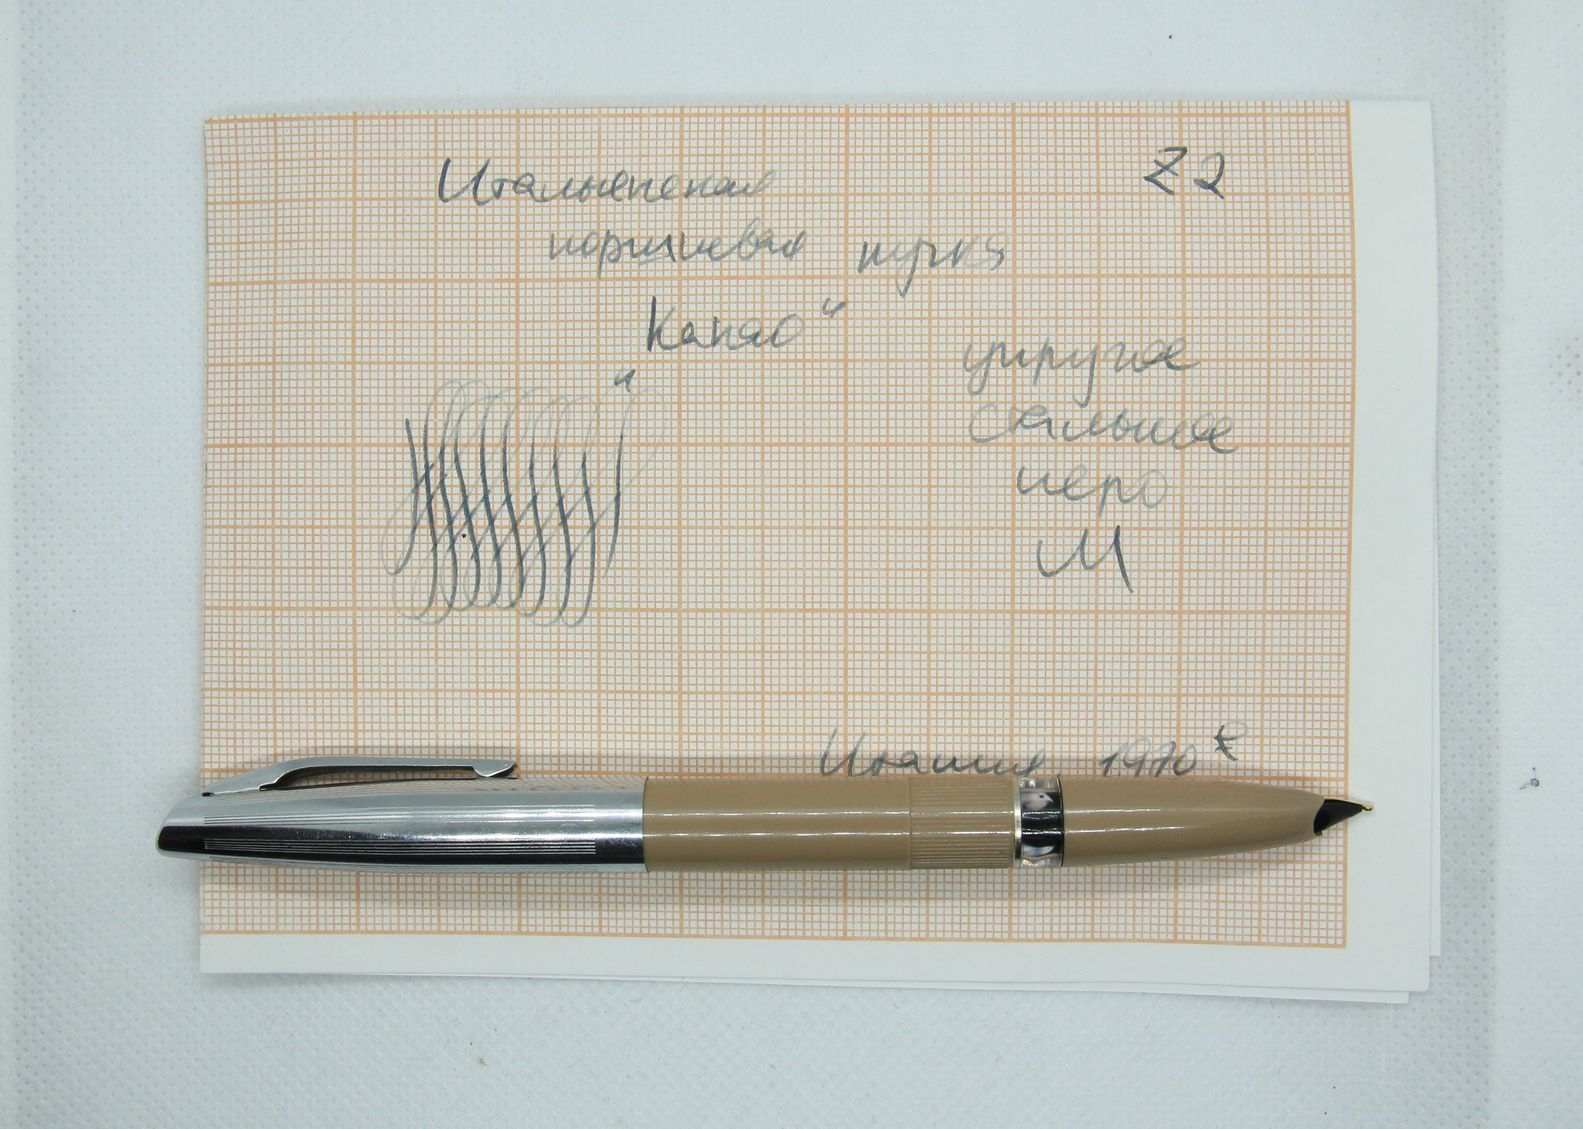 Итальянская
Z2
поршневая ручка
"Каняо"
упругое
стальное
перо
М
Италия 1970е